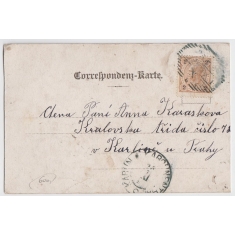 Correspondenz-Karte.
Ctena Paní Anna Karaskova
Kralovska třída číslo 7
v Karlíně u Prahy
PARDUBITZ